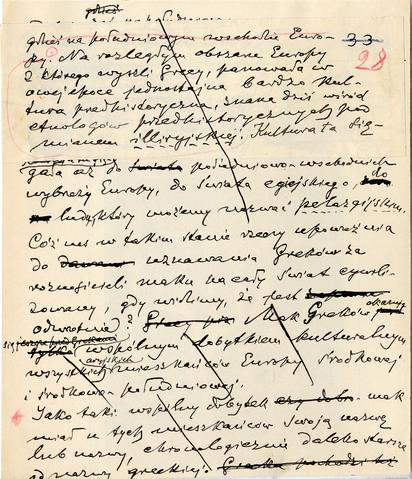 gdzieś
gdzieś na południowym wschodzie Euro-
33
28
py. Na rozległym obszarze Europy
z którego wyszli Grecy, panowała w
owej epoce jednostajna bardzo kul-
tura przedhistoryczna, znana dziś wśród
etnologów przedhistorycznych pod
mianem illiryjskiej. Kultura ta się-
gała aż do świata południowo-wschodnich
wybrzeży Europy, do świata egejskiego, do
ludu, który możemy nazwać pelazgijskim.
Cóż nas w takim stanie rzeczy upoważnia
do uznawania Greków za
roznosicieli maku na cały świat cywili-
zowany, gdy widzimy, że jest
odwrotnie? Mak Greków okazuje
się
tylko wspólnym dobytkiem kulturalnym
wszystkich aryjskich mieszkańców Europy środkowej
i środkowo-południowej.
Jako taki wspólny dobytek czy dobro mak
miał u tych mieszkańców swoją nazwę
lub nazwy, chronologicznie daleko starsze
od nazwy greckiej.